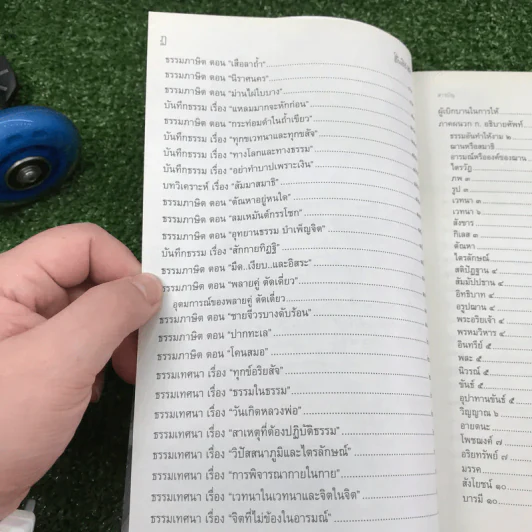 ธรรมภาษิต ตอน "เสือลาถ้ำ"
ธรรมภาษิต ตอน "นิราศนคร"
ธรรมภาษิต ตอน "ม่านไผ่ใบบาง"
บันทึกธรรม เรื่อง "แหลมมากจะหักก่อน"
ธรรมภาษิต ตอน "กระท่อมดำในถ้ำเขียว"
บันทึกธรรม เรื่อง "ทุกขเวทนาและทุกขสัจ"
บันทึกธรรม เรื่อง "ทางโลกและทางธรรม"
บันทึกธรรม เรื่อง "อย่าทำบาปเพราะเงิน"
บทวิเคราะห์ เรื่อง "สัมมาสมาธิ"
ธรรมภาษิต ตอน "ตัณหาอยู่หนใด"
ธรรมภาษิต ตอน "ลมเหมันต์กรรโชก"
ธรรมภาษิต ตอน "อุทยานธรรม บำเพ็ญจิต"
บันทึกธรรม เรื่อง "สักกายทิฏฐิ"
ธรรมภาษิต ตอน "มืด..เงียบ..และอิสระ"
ธรรมภาษิต ตอน "พลายคู่ ตัดเดี่ยว"
อุดมการณ์ของพลายคู่ ตัดเดี่ยว
ธรรมภาษิต ตอน "ชายจีวรบางดับร้อน"
ธรรมภาษิต ตอน "ปากทะเล"
ธรรมภาษิต ตอน "โคนสมอ"
ธรรมเทศนา เรื่อง "ทุกข์อริยสัจ"
ธรรมเทศนา เรื่อง "ธรรมในธรรม"
ธรรมเทศนา เรื่อง "วันเกิดหลวงพ่อ"
ธรรมเทศนา เรื่อง "สาเหตุที่ต้องปฏิบัติธรรม"
ธรรมเทศนา เรื่อง "วิปัสสนาภูมิและไตรลักษณ์"
ธรรมเทศนา เรื่อง "การพิจารณากายในกาย"
ธรรมเทศนา เรื่อง "เวทนาในเวทนาและจิตในจิต"
ธรรมเทศนา เรื่อง "จิตที่ไม่ข้องในอารมณ์"
สารบัญ
ผู้เบิกบานในการให้
ภาคผนวก ก. อธิบายศัพท์
ธรรมอันทำให้งาม ๒
ฌานหรือสมาธิ
อารมณ์หรือองค์ของฌาน
ไตรวัฏ
ภพ ๓
รูป ๓
เวทนา ๓
เวทนา ๖
สังขาร
กิเลส ๓
ตัณหา
ไตรลักษณ์
สติปัฏฐาน ๔
สัมมัปปธาน ๔
อิทธิบาท ๔
อรูปฌาน ๔
พระอริยเจ้า ๔
พรหมวิหาร ๔
อินทรีย์ ๕
พละ ๕
นิวรณ์ ๕
ขันธ์ ๕
อุปาทานขันธ์ ๕
วิญญาณ ๖
อายตนะ
โพชฌงค์ ๗
อริยทรัพย์ ๗
มรรค
สังโยชน์ ๑๐
บารมี ๑๐